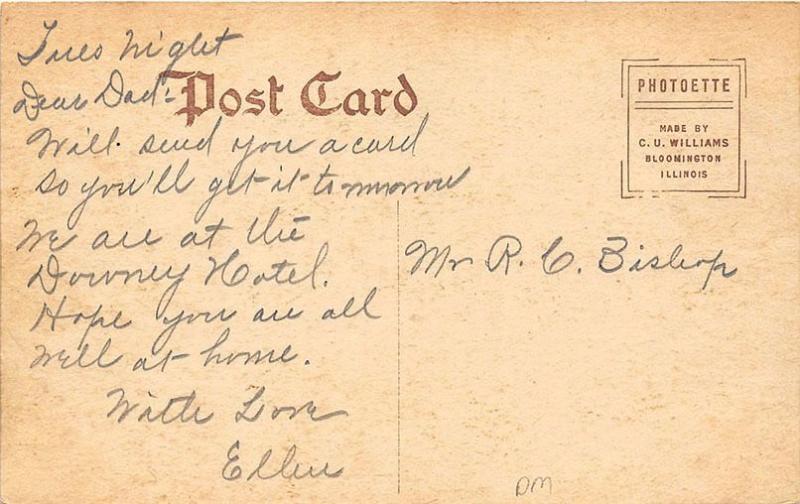 Tues Night
Dear Dad:-
Post Card
Will send you a card
so you'll get it tomorrow
We are at the
Downey Hotel.
Hope you are all
well at home.
With Love
Ellen
PHOTOETTE
MADE BY
C. U. WILLIAMS
BLOOMINGTON
ILLINOIS
Mr R. C. Bishop
DM